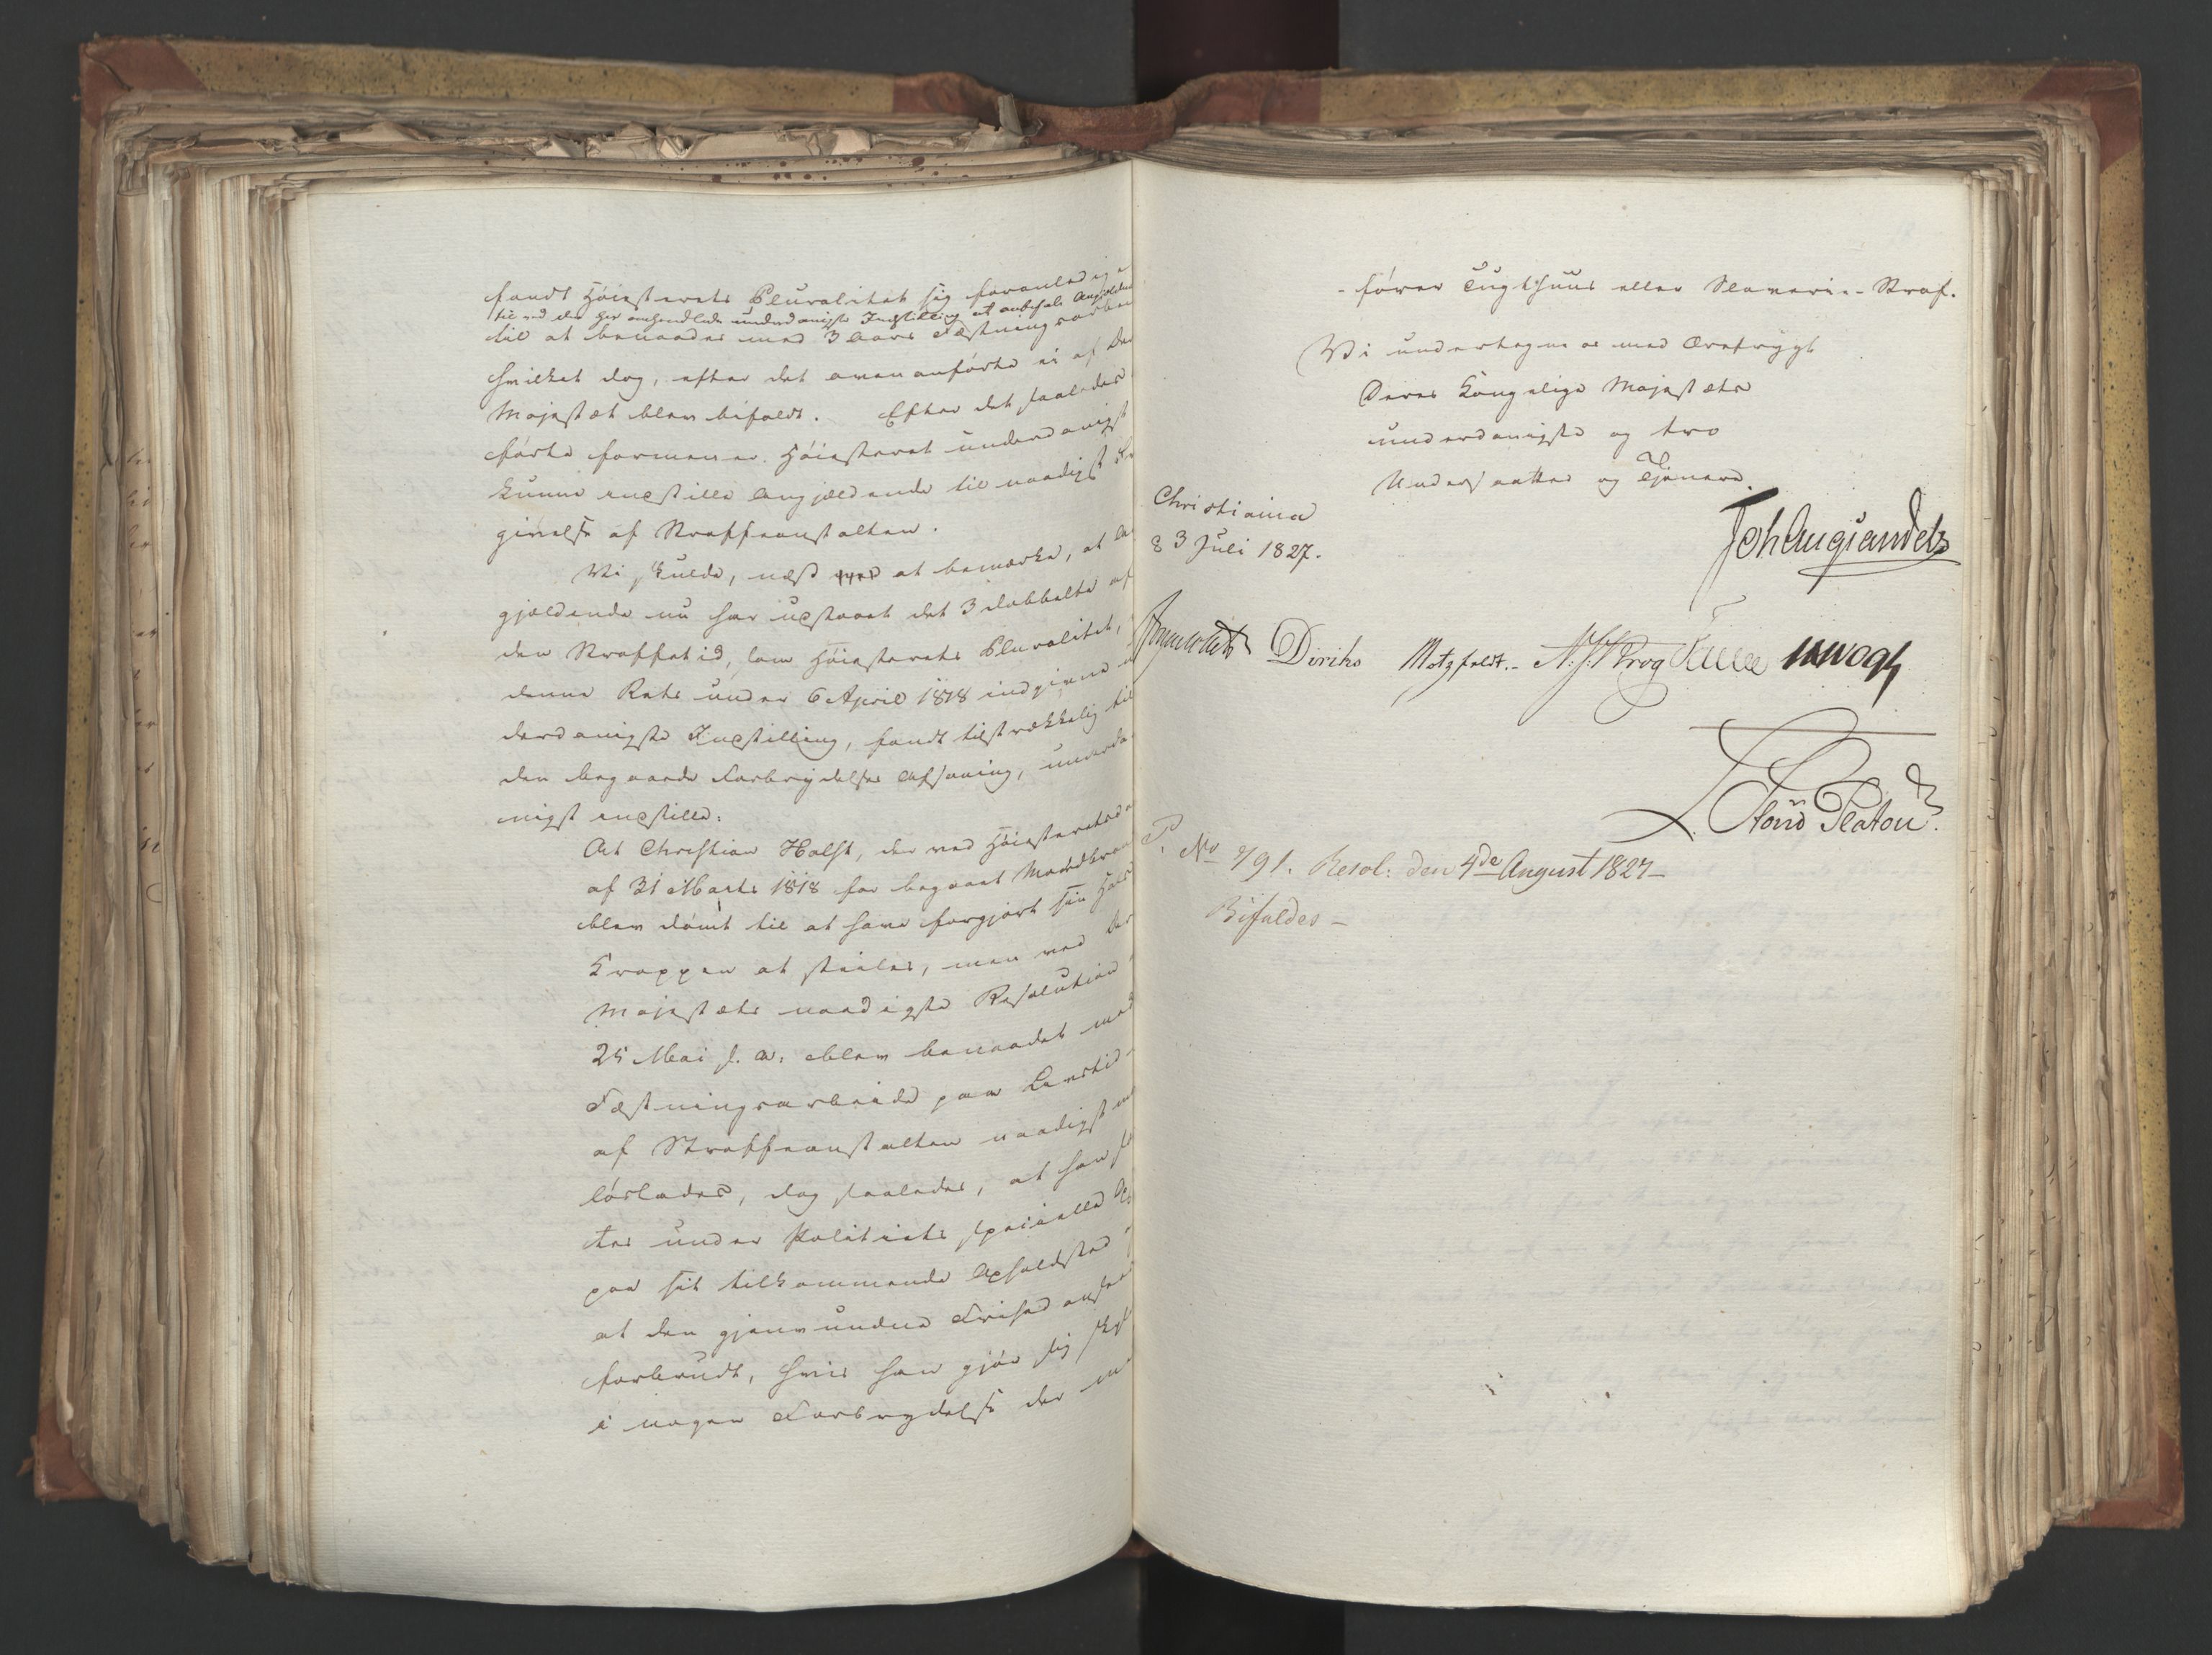 fandt Høiesterets Pluralitet sig foranledig
til ved den her omhandlede underdanigste Indstilling at anbefale Angjældende
til at benaades med 3 Aars Fæstningsarbei
hvilket dog, efter det ovenanførte ei af De
Majestæt blev bifaldt. Efter det saaledes
førte formener Høiesteret underdanigst
kunne indstille Angjældende til naadigst
givelse af Straffeanstalten.
Vi skulde, næst at bemærke, at A
gjældende nu har udstaaet det 3 dobbelte af
den Straffetid, som Høiesterets Pluralitet,
denne Rets under 6 April 1818 indgivne
derdanigste Indstilling, fandt tilstrækkelig til
den begaaede Forbrydelses Afsoning, underda
nigst indstille:
At Christian Holst, der ved Høiesteretsd
af 31 Marts 1818 for begaaet Mord
blev dømt til at have forgjort sin Hals
Kroppen at steiles, men ved De
Majestæts naadigste Resolution
25 Mai s. A. blev benaadet med
Fæstningsarbeide paa Livstid
af Straffeanstalten naadigst
løslades, dog saaledes, at han s
tes under Politiets specielle O
paa sit tilkommende Opholdsted
at den gjenvundne Frihed
forbrudt, hvis han gjør sig sky
i nogen Forbrydelse der m
- fører Tugthuus eller Slaverie-Straf.
Vi undertegne os med Ærefrygt
Deres Kongelige Majestæts
underdanigste og tro
Undersaatter og Tjenere.
Christiania
3 Juli 1827.
Joh Aug Sandels
Diriks Motzfeldt.- N. J. Krog
L. Stoud Platou.
No 791. Resol: den 4de August 1827-
Bifaldes-